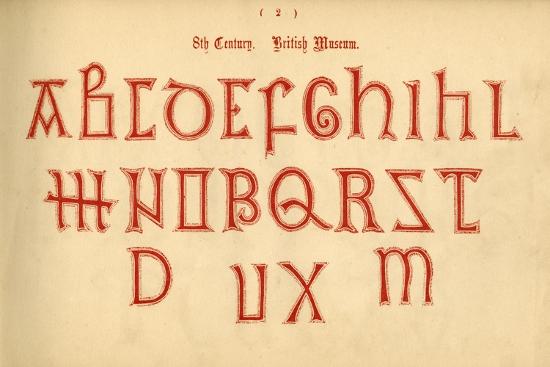 ( 2 )
8th Century. British Museum.
ABCDEFGHIHL
MNOBQRST
D UX M